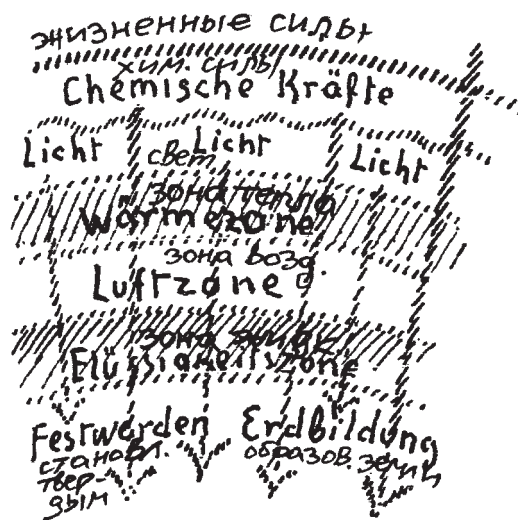 жизненные силы
хим. силы
Chemische Kräfte
Licht Licht Licht
свет
зона тепла
Wärmezone
зона возд.
Luftzone
зона жидк.
Flüssigkeitszone
Festwerden Erdbildung
становл. образов. земли
твер-
дым